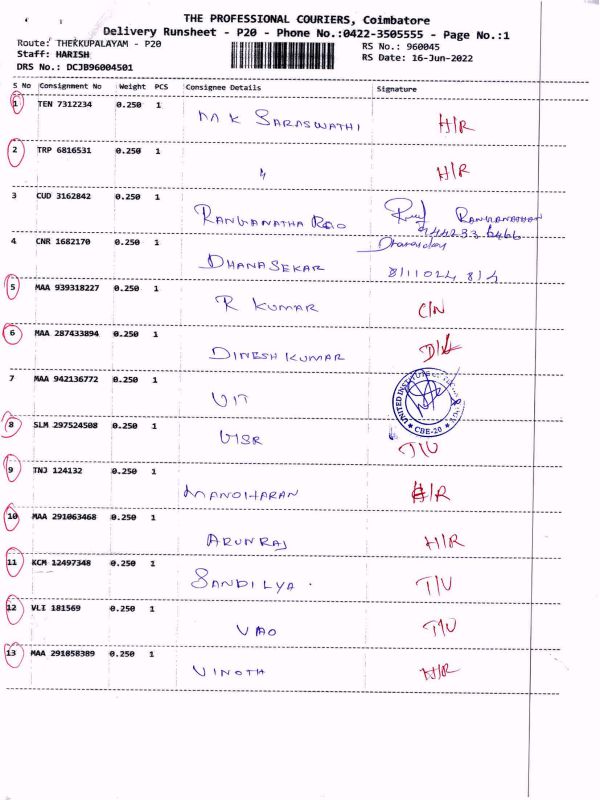 THE PROFESSIONAL COURIERS, Coimbatore
Delivery Runsheet - P20 - Phone No.:0422-3505555 - Page No.:1
Route: THEKKUPALAYAM - P20
RS No.: 960045
Staff: HARISH
RS Date: 16-Jun-2022
DRS No.: DCJB96004501
S No Consignment No Weight PCS Consignee Details Signature
1 TEN 7312234 0.250 1 M K SARASWATHI H/R
2 TRP 6816531 0.250 1 " H/R
3 CUD 3162842 0.250 1 RANGANATHA RAO RANGANATHAN
4 CNR 1682170 0.250 1 DHANASEKAR Dhanasekar
5 MAA 939318227 0.250 1 R KUMAR C/N
6 MAA 287433894 0.250 1 DINESH KUMAR D/L
7 MAA 942136772 0.250 1 UIT UNITED INSTITUTE CBE-20
8 SLM 297524508 0.250 1 T/U
9 TNJ 124132 0.250 1 MANOHARAN H/R
10 MAA 291063468 0.250 1 ARUNRAJ H/R
11 KCM 12497348 0.250 1 SANDILYA . T/U
12 VLI 181569 0.250 1 VAO T/U
13 MAA 291858389 0.250 1 VINOTH H/R